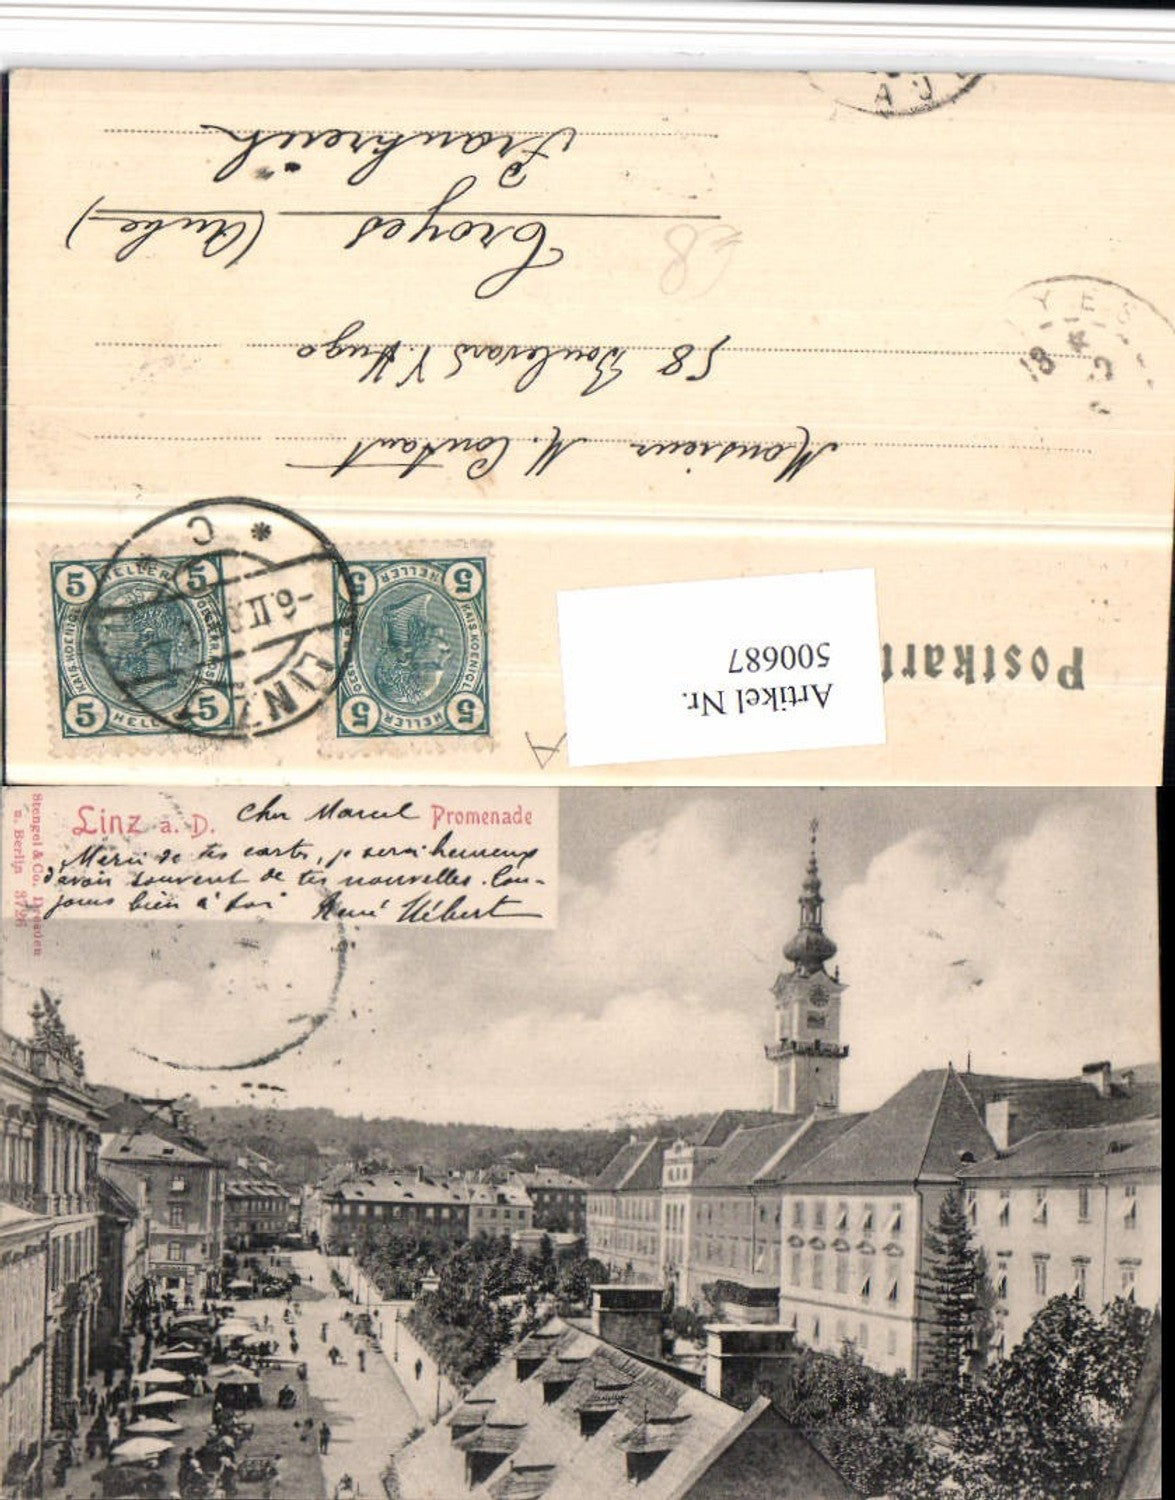 Postkart
Artikel Nr.
500687
5 HELLER 5
KAIS. KOENIGL.
OESTERR. POST
5 HELLER 5
LINZ
-6.II.
* C
Monsieur M. Constant
58 Boulevard V. Hugo
Troyes (Aube)
Frankreich
Linz a. D. Promenade
Cher Marcel
Merci de tes cartes, je serai heureux
d'avoir souvent de tes nouvelles. Tou-
jours bien à toi René Hébert
Stengel & Co. Dresden
u. Berlin 3726